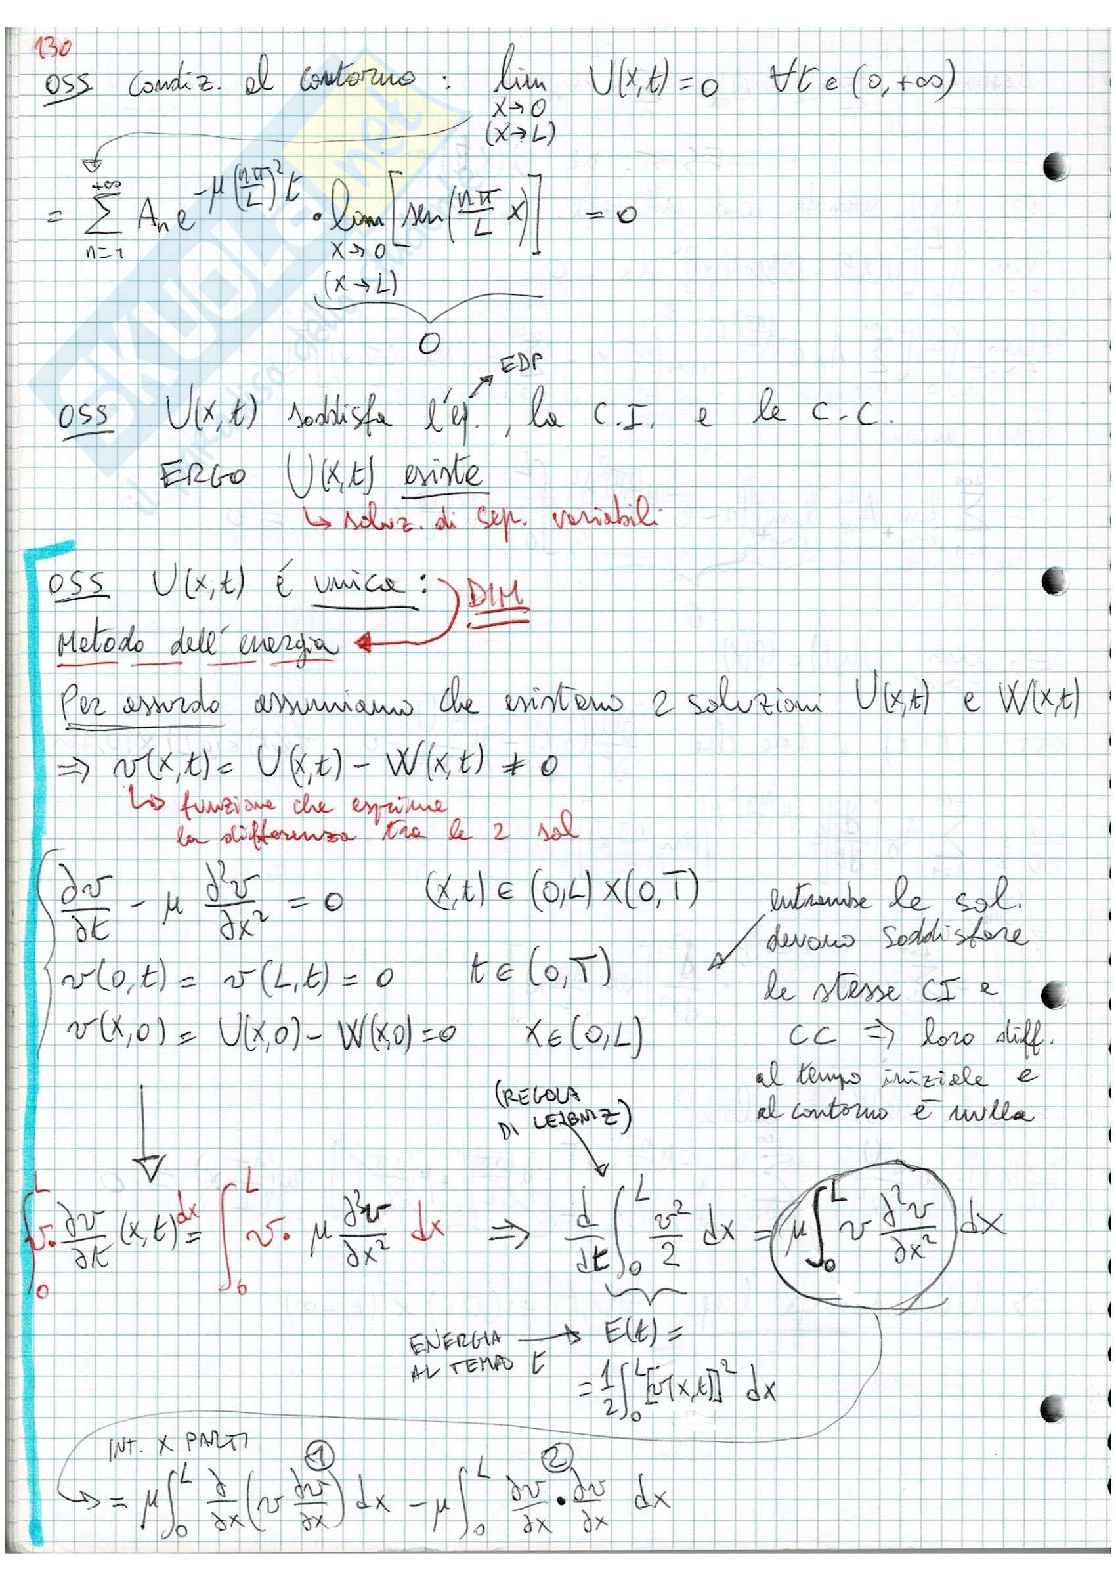 130
OSS Condiz. al contorno : lim U(x,t) = 0 ∀t ∈ (0,+∞)
x→0
(x→L)
= +∞ ∑ n=1 Aₙ e^{-μ(nπ/L)² t} · lim [sen(nπ/L x)] = 0
x→0
(x→L)
0
EDP
OSS U(x,t) soddisfa l'eq. , la C.I. e le C.C.
ERGO U(x,t) esiste
↳ soluz. di sep. variabili
OSS U(x,t) é unica : DIM
Metodo dell'energia
Per assurdo assumiamo che esistano 2 soluzioni U(x,t) e W(x,t)
⇒ v(x,t) = U(x,t) - W(x,t) ≠ 0
↳ funzione che esprime
la differenza tra le 2 sol
∂v/∂t - μ ∂²v/∂x² = 0 (x,t) ∈ (0,L) x (0,T)
v(0,t) = v(L,t) = 0 t ∈ (0,T)
v(x,0) = U(x,0) - W(x,0) = 0 x ∈ (0,L)
entrambe le sol.
devono soddisfare
le stesse CI e
CC ⇒ loro diff.
al tempo iniziale e
al contorno è nulla
(REGOLA
DI LEIBNIZ)
∫₀ᴸ v· ∂v/∂t (x,t) dx = ∫₀ᴸ v· μ ∂²v/∂x² dx ⇒ d/dt ∫₀ᴸ v²/2 dx = μ ∫₀ᴸ v ∂²v/∂x² dx
ENERGIA → E(t) =
AL TEMPO t
= 1/2 ∫₀ᴸ [v(x,t)]² dx
INT. X PARTI
① ②
= μ ∫₀ᴸ ∂/∂x (v ∂v/∂x) dx - μ ∫₀ᴸ ∂v/∂x · ∂v/∂x dx
SKUOLA.net